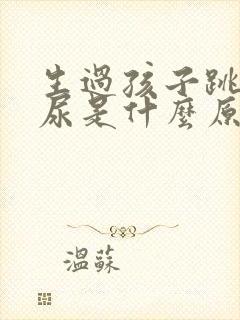 生過孩子跳
尿是什麼原
溫蘇